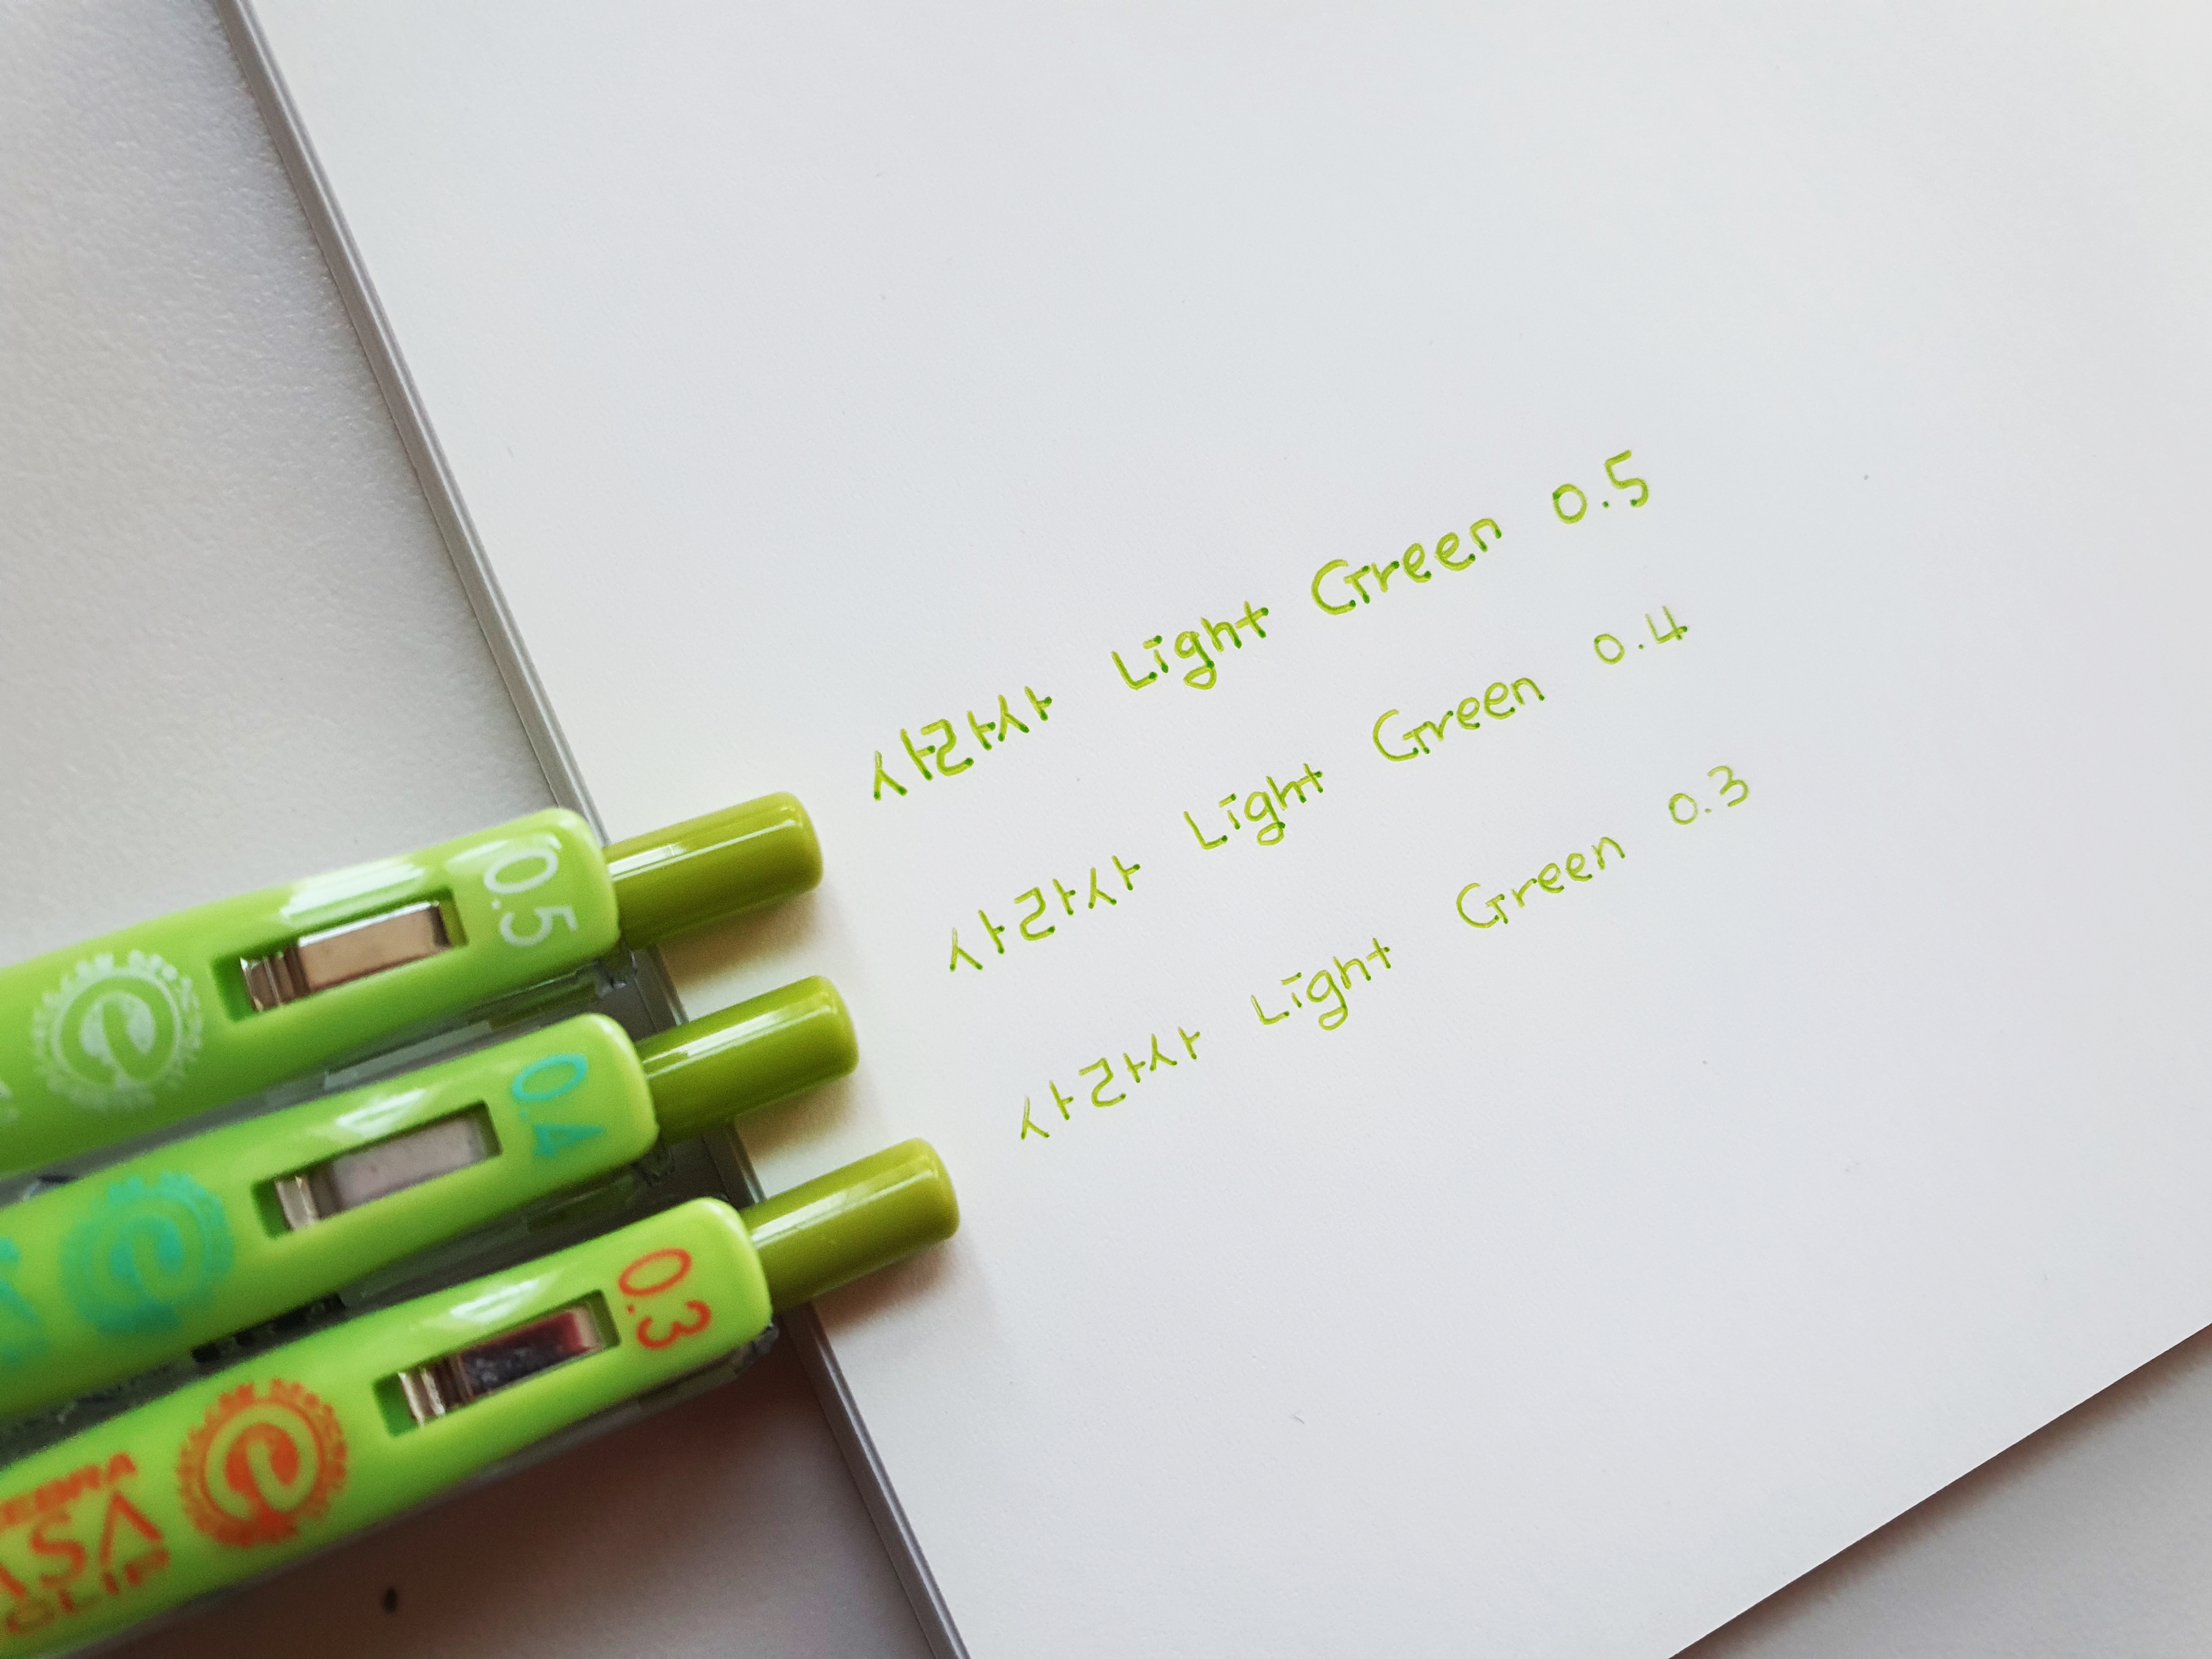 사라사 Light Green 0.5
사라사 Light Green 0.4
사라사 Light Green 0.3
0.5
e
0.4
e
0.3
e
CLIP